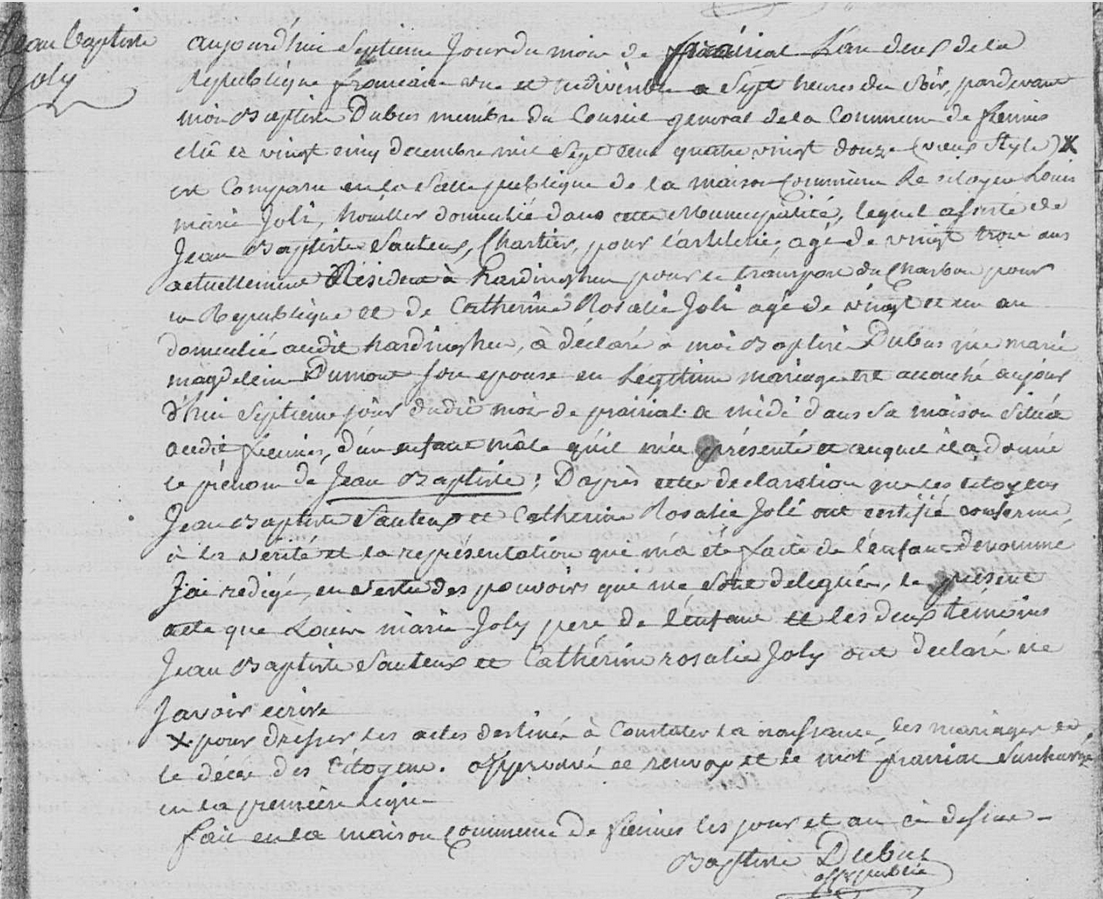 Jean Baptiste
Joly
aujourd'hui Septieme Jour du mois de prairial L'an deux de la
Republique francaise une et indivisible a Sept heures du Soir, pardevant
moi Baptiste Dubus membre du Conseil general de la Commune de fiennes
elu le vingt cinq decembre mil Sept cent quatre vingt douze (vieux Style) X
est Comparu en la Salle publique de la maison Commune le citoyen Louis
marie Joli, houiller domicilié dans cette Municipalité, lequel assisté de
Jean Baptiste Sauteux, Chartier, pour l'artillerie, agé de vingt trois ans
actuellement Résident à hardinghen pour le transport du Charbon pour
la Republique et de Catherine Rosalie Joli agé de vingt et un an
domicilié audit hardinghen, à déclaré à moi Baptiste Dubus que marie
magdeleine Dumont Son epouse en Legitime mariage est accouché aujour
d'hui Septieme jour dudit mois de prairial a midi dans Sa maison Située
audit fiennes, d'un enfant mâle qu'il m'a présenté et auquel il a donné
le prénom de Jean Baptiste ; D'après cette declaration que les citoyens
Jean Baptiste Sauteux et Catherine Rosalie Joli ont certifié conforme
à la vérité et la représentation que m'a été faite de l'enfant dénommé
J'ai redigé, en vertu des pouvoirs qui me Sont delegués, le présent
acte que Louis marie Joly pere de l'enfant et les deux témoins
Jean Baptiste Sauteux et Catherine rosalie Joly ont declaré ne
Savoir ecrire
X pour dresser les actes destinés à Constater la naissance les mariages et
le décès des Citoyens. approuvé le renvoy et le mot prairial Surchargé
en la premiere ligne
fait en la maison Commune de fiennes les jour et an ci dessus
Baptiste Dubus
off publié